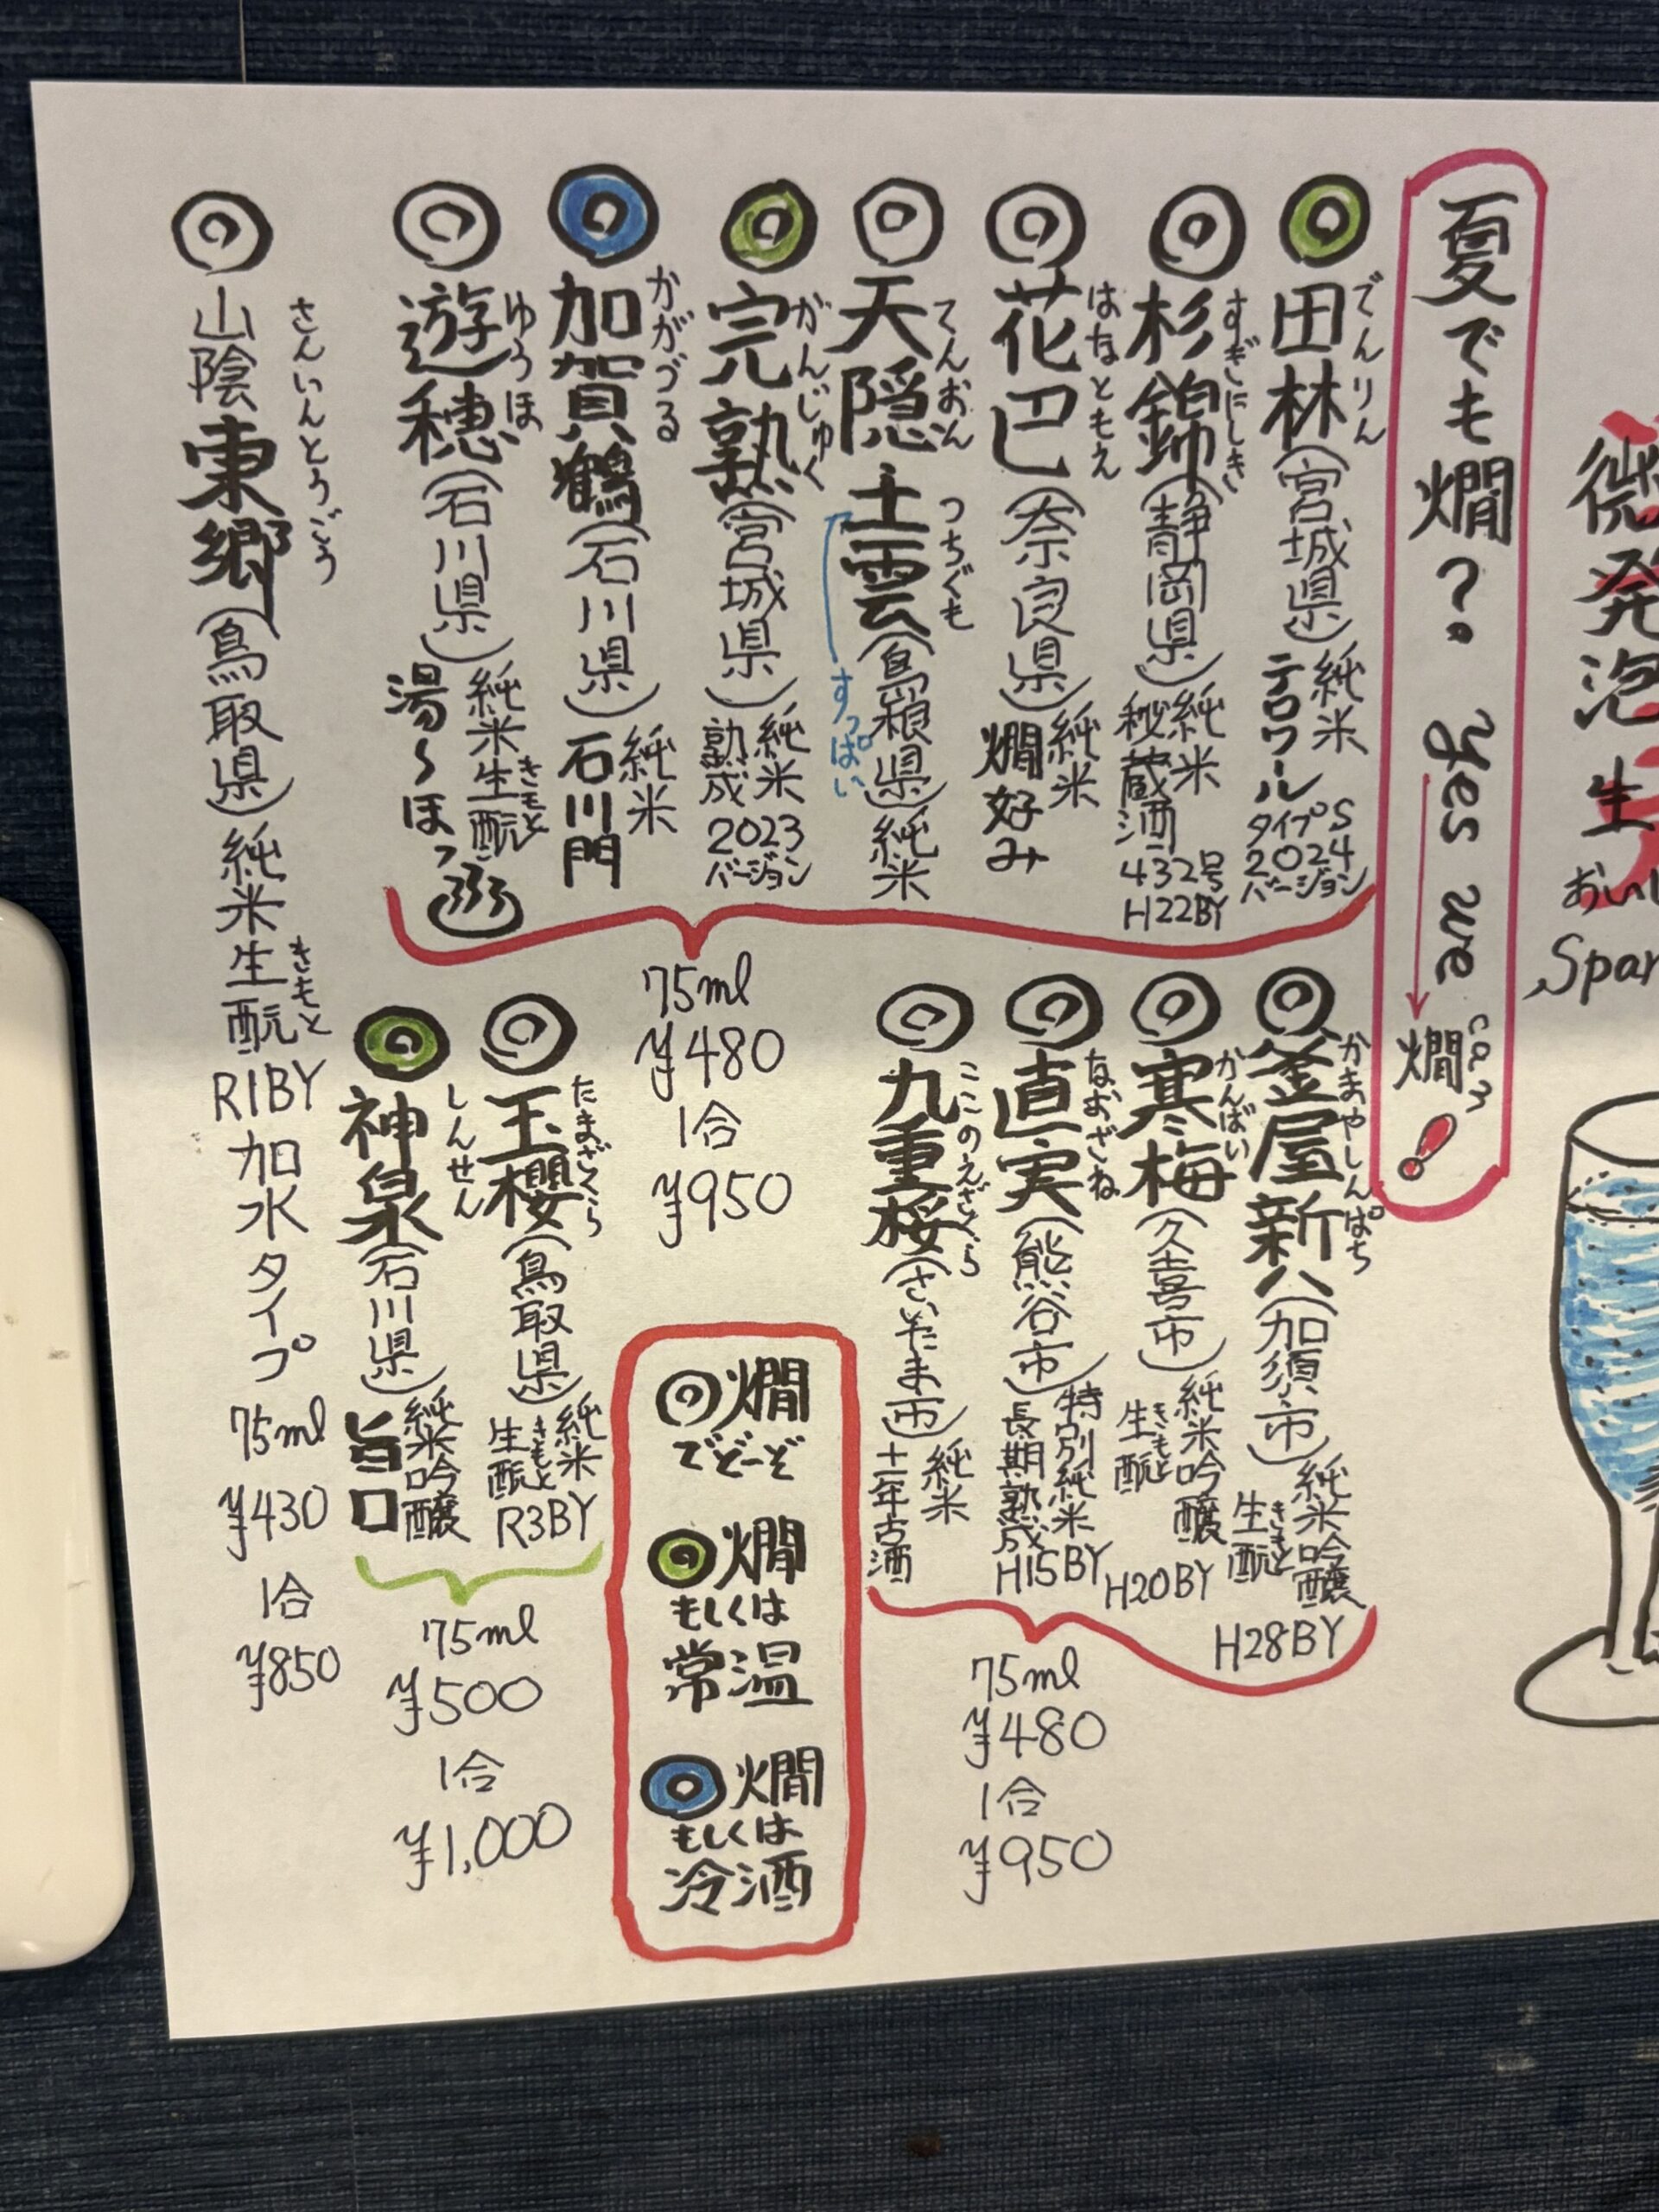 微発泡生
おいし
Spar
夏でも燗？ Yes we 燗can！
◎田林でんりん(宮城県)純米
テロワール
タイプS
2024
バージョン
◎杉錦すぎにしき(静岡県)純米
秘蔵酒
432号
H22BY
◎花巴はなともえ(奈良県)純米
燗好み
◎天隠てんおん土雲つちぐも(島根県)純米
すっぱい
◎完熟かんじゅく(宮城県)純米
熟成
2023
バージョン
◎加賀鶴かがづる(石川県)純米
石川門
◎遊穂ゆうほ(石川県)純米生酛きもと
湯〜ほっ
75ml
¥480
1合
¥950
◎釜屋新八かまやしんぱち(加須市)純米吟醸
生酛きもと
H28BY
◎寒梅かんばい(久喜市)純米吟醸
生酛きもと
H20BY
◎直実なおざね(熊谷市)特別純米
長期熟成
H15BY
◎九重桜ここのえざくら(さいたま市)純米
十一年古酒
75ml
¥480
1合
¥950
◎玉櫻たまざくら(鳥取県)純米
生酛きもと
R3BY
◎神泉しんせん(石川県)純米吟醸
旨口
75ml
¥500
1合
¥1,000
◎山陰東郷さんいんとうごう(鳥取県)純米生酛きもとR1BY加水タイプ
75ml
¥430
1合
¥850
◎燗
でどーぞ
◎燗
もしくは
常温
◎燗
もしくは
冷酒